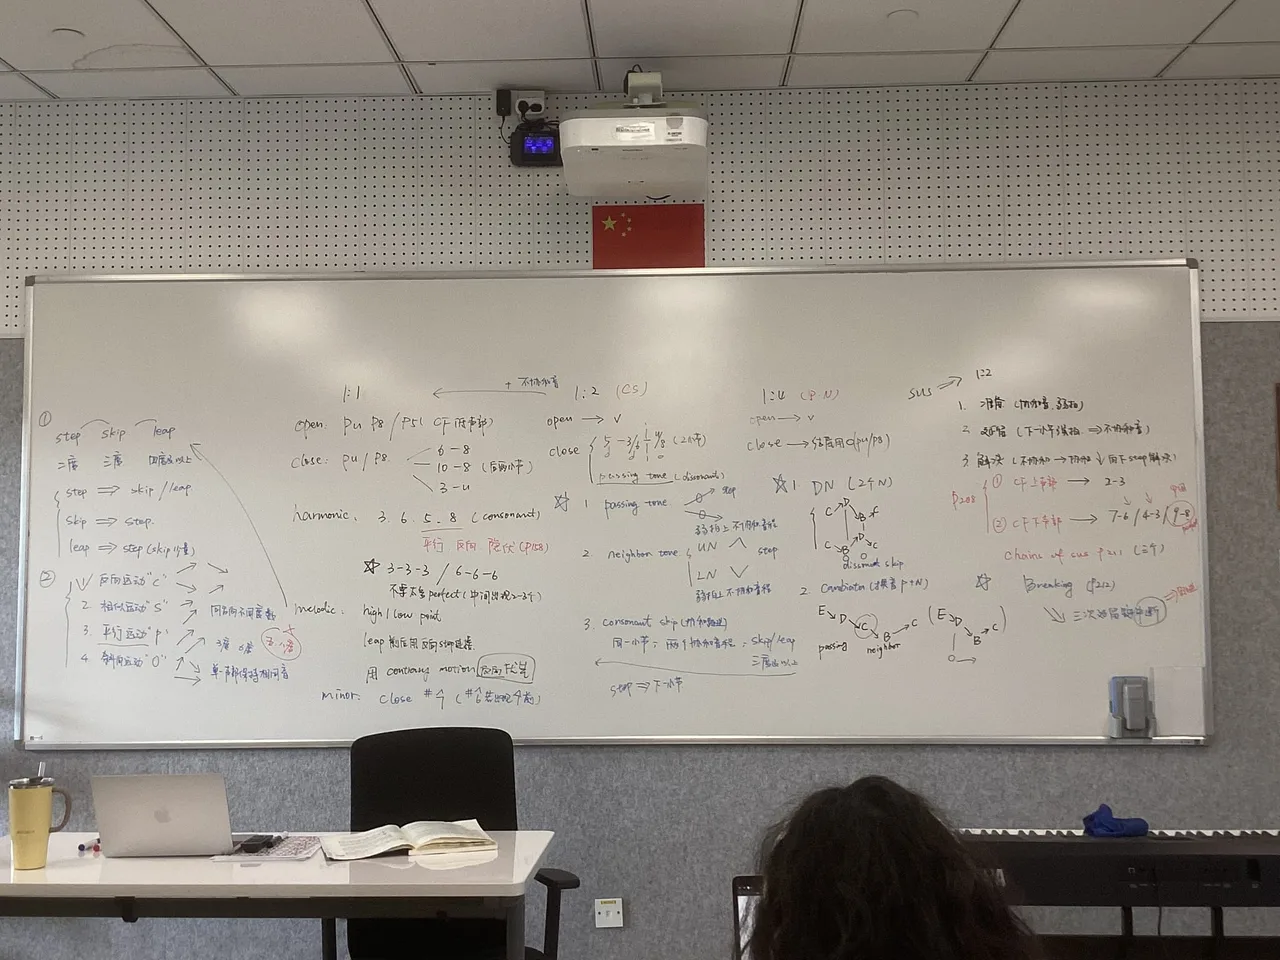 ①
step skip leap
二度 三度 四度及以上
step ⇒ skip/leap
skip ⇒ step.
leap ⇒ step (skip 少量)
②
反向运动"C"
2. 相似运动"S"
同方向不同度数
3. 平行运动"P"
3度 6度
4. 斜向运动"O"
单一声部保持相同音
1:1
+ 不协和音
open: PU P8 / P5 (CF 下方声部)
close: PU/P8
6-8
10-8 (后两小节)
3-U
harmonic. 3. 6. 5. 8 (consonant)
平行 反向 隐伏 (P158)
☆ 3-3-3 / 6-6-6
不要太多 perfect (中间出现2-3个)
melodic. high/low point
leap 前后用反向step连接
用 contrary motion
minor: close #7
1:2 (CS)
open → v
close
5-3/6
(2小节)
passing tone (dissonant)
☆ 1 passing tone
step
弱拍上不协和音程
2. neighbor tone
UN
step
LN
弱拍上不协和音程
3. consonant skip
同一小节: 两个协和音程: skip/leap
三度及以上
step ⇒ 下一小节
1:4 (P.N)
open → v
close → 结尾用 O (PU/P8)
☆ 1. DN (2个N)
C D B C
C B D C
dissonant skip
2. Cambiata (换音 P+N)
E D C B C
passing neighbor
(E D B C)
sus → 1:2
1. 准备 (协和音, 弱拍)
2. 延留 (下一小节强拍 ⇒ 不协和音)
3. 解决 (不协和 → 协和 ↓ 向下step解决)
P208
① CF 上声部 → 2-3
② CF 下声部 → 7-6 / 4-3 / 9-8
chains of sus P211 (三个)
☆ Breaking (P212)
三次延留就中断